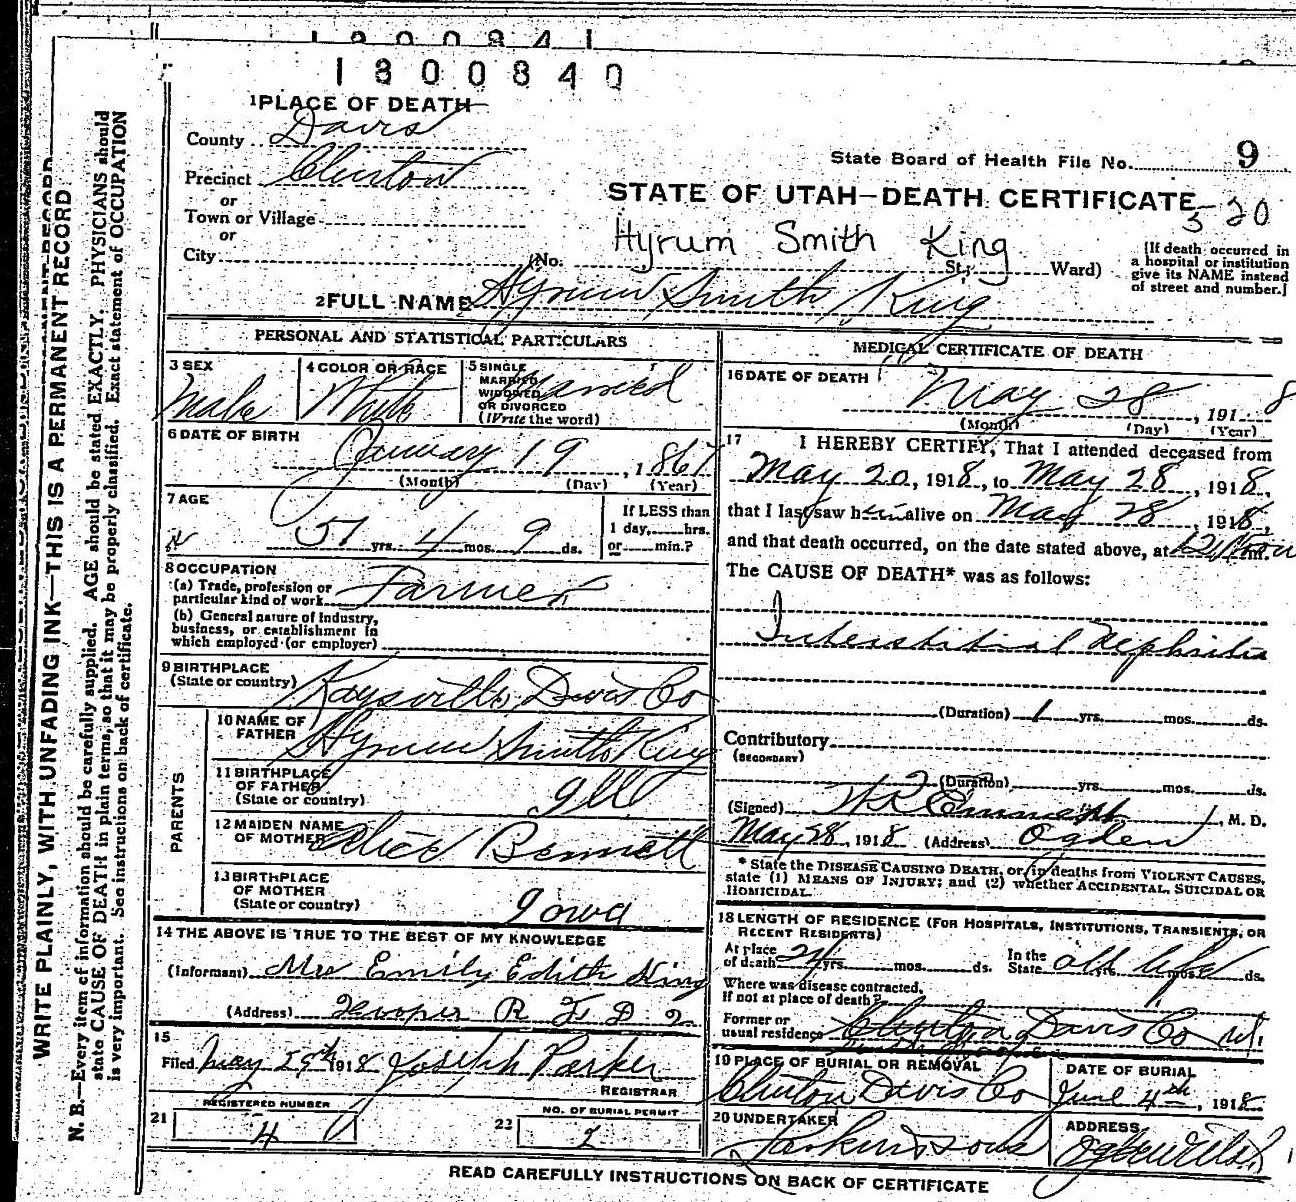 1800841
1800840
1 PLACE OF DEATH
County Davis
State Board of Health File No. 9
Precinct Clinton
or
STATE OF UTAH—DEATH CERTIFICATE
Town or Village
or
City
Hyrum Smith King
(No. St.; Ward)
[If death occurred in
a hospital or institution
give its NAME instead
of street and number.]
2 FULL NAME Hyrum Smith King
PERSONAL AND STATISTICAL PARTICULARS
3 SEX
Male
4 COLOR OR RACE
White
5 SINGLE
MARRIED
WIDOWED
OR DIVORCED
(Write the word)
Married
6 DATE OF BIRTH
January 19, 1867
(Month) (Day) (Year)
7 AGE
51 yrs. 4 mos. 9 ds.
If LESS than
1 day, hrs.
or min.?
8 OCCUPATION
(a) Trade, profession or
particular kind of work Farmer
(b) General nature of industry,
business, or establishment in
which employed (or employer)
9 BIRTHPLACE
(State or country) Kaysville, Davis Co
PARENTS
10 NAME OF
FATHER Hyrum Smith King
11 BIRTHPLACE
OF FATHER
(State or country) Ill
12 MAIDEN NAME
OF MOTHER Alice Bennett
13 BIRTHPLACE
OF MOTHER
(State or country) Iowa
14 THE ABOVE IS TRUE TO THE BEST OF MY KNOWLEDGE
(Informant) Mrs Emily Edith King
(Address) Hooper R F D 2
15
Filed May 29th 1918 Joseph Parker
REGISTRAR
21 REGISTERED NUMBER
4
22 NO. OF BURIAL PERMIT
2
MEDICAL CERTIFICATE OF DEATH
16 DATE OF DEATH
May 28, 1918
(Month) (Day) (Year)
17 I HEREBY CERTIFY, That I attended deceased from
May 20, 1918, to May 28, 1918,
that I last saw him alive on May 28, 1918,
and that death occurred, on the date stated above, at m.
The CAUSE OF DEATH* was as follows:
Interstitial Nephritis
(Duration) 1 yrs. mos. ds.
Contributory
(SECONDARY)
(Duration) yrs. mos. ds.
(Signed) , M. D.
May 28, 1918 (Address) Ogden
* State the DISEASE CAUSING DEATH, or, in deaths from VIOLENT CAUSES,
state (1) MEANS OF INJURY; and (2) whether ACCIDENTAL, SUICIDAL OR
HOMICIDAL.
18 LENGTH OF RESIDENCE (FOR HOSPITALS, INSTITUTIONS, TRANSIENTS, OR
RECENT RESIDENTS)
At place
of death yrs. mos. ds.
In the
State all life yrs. mos. ds.
Where was disease contracted,
If not at place of death?
Former or
usual residence Clinton Davis Co Ut.
19 PLACE OF BURIAL OR REMOVAL
Clinton Davis Co
DATE OF BURIAL
June 4th, 1918
20 UNDERTAKER
ADDRESS
Ogden Utah
READ CAREFULLY INSTRUCTIONS ON BACK OF CERTIFICATE
WRITE PLAINLY, WITH UNFADING INK—THIS IS A PERMANENT RECORD
N. B.—Every item of information should be carefully supplied. AGE should be stated EXACTLY. PHYSICIANS should
state CAUSE OF DEATH in plain terms, so that it may be properly classified. Exact statement of OCCUPATION
is very important. See instructions on back of certificate.